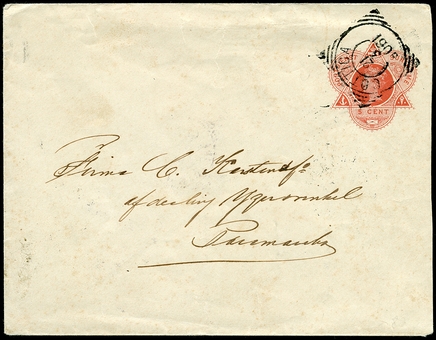 5 CENT
Firma C. Kersten & Co
afdeeling Yzerwinkel
Paramaribo